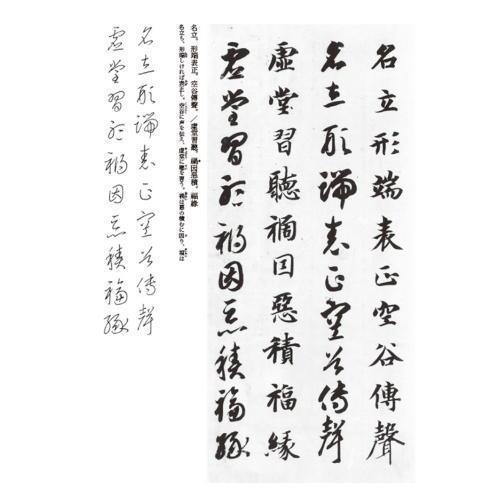 名立形端表正空谷傳聲
名立形端表正空谷傳聲
虛堂習聽禍因惡積福緣
虛堂習聽禍因惡積福緣
名立、形端表正。空谷傳聲、／虛堂習聽。禍因惡積、福緣
名立ち、形端しければ表正し。空谷に声を伝え、虚堂に聴を習う。禍は悪の積むに因り、福は
名立形端表正空谷傳聲
虛堂習聽禍因惡積福緣